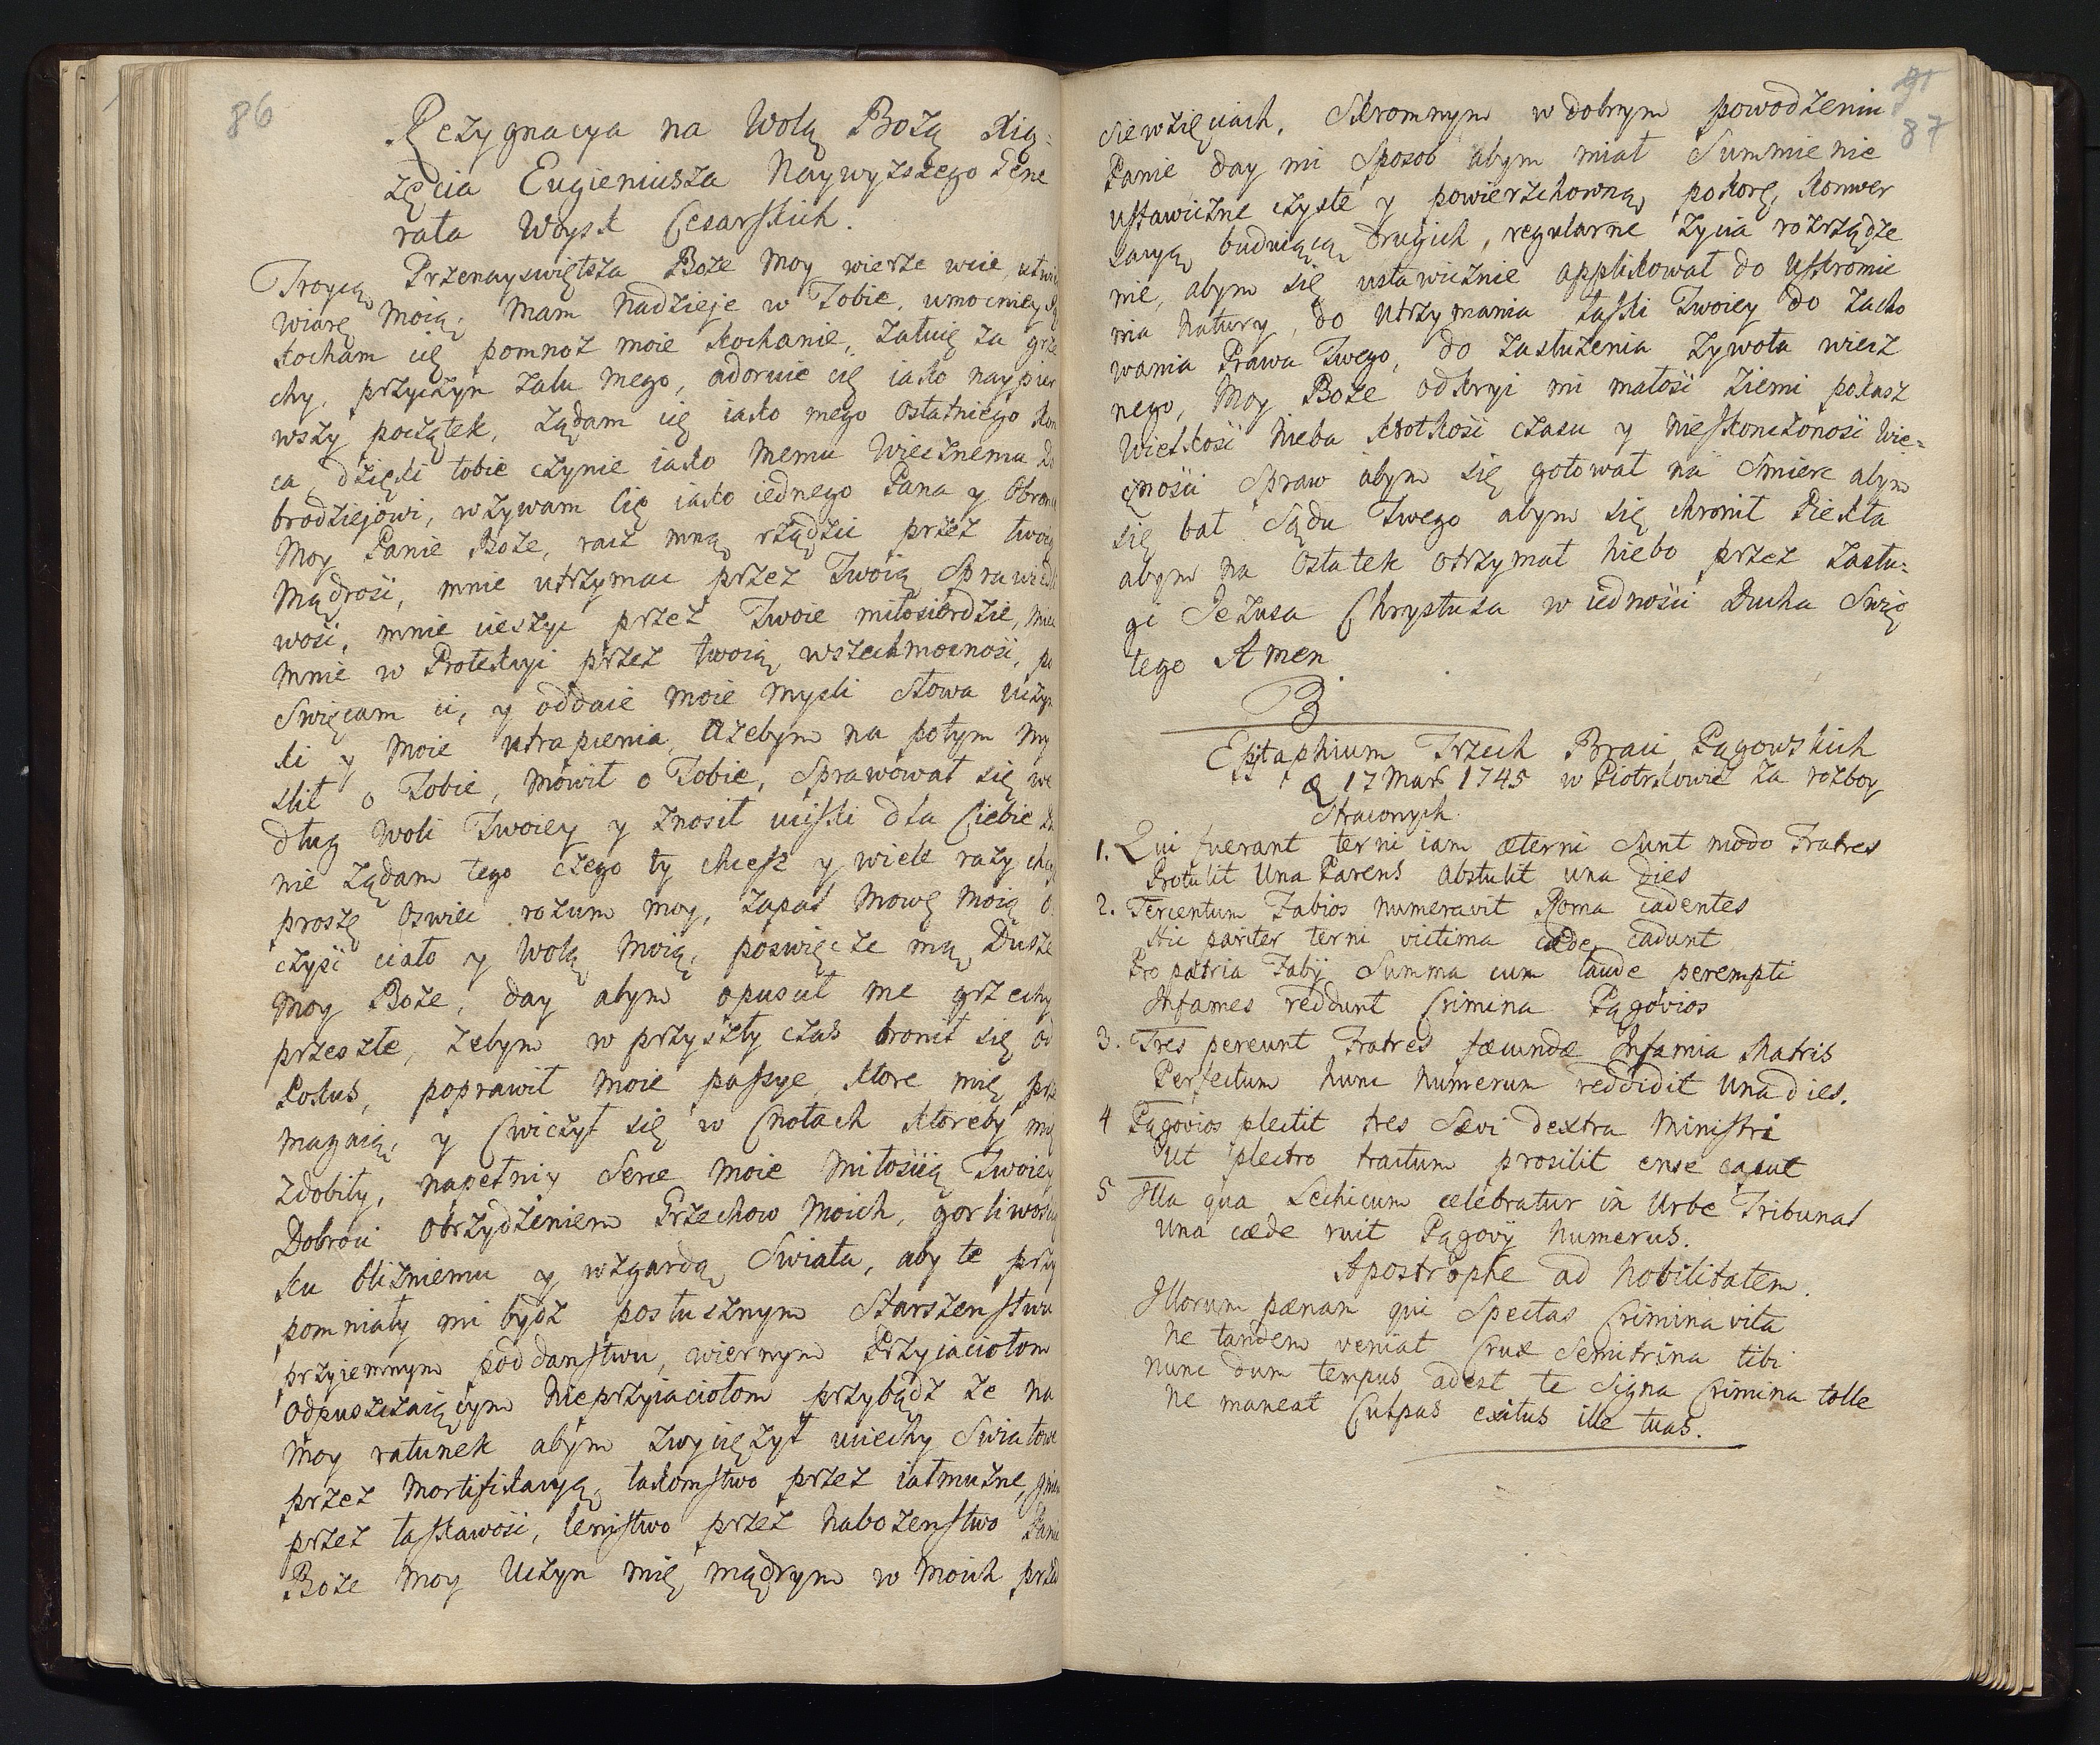 86
Rezygnacya na Wolą Bożą Xią-
zęcia Eugieniusza Naywyzszego Gene
rała Woysk Cesarskich.
Troyco Przenayswiętsza Boze moy wierze wcie,
wiarę moią, mam nadzieje w Tobie, umocniey
kocham cię pomnoż moie kochanie, załuię za grze
chy, przyczyn zalu mego, adoruie cię iako naypier
wszy początek, ządam cię iako mego ostatniego kon
ca, dzięki tobie czynie iako memu Wiecznemu Do
brodziejowi, wzywam cię iako iednego Pana y Obronce
Moy Panie Boze, racz mną rządzic przez twoią
Mądrość, mnie utrzymac przez Twoią Sprawiedli
wosć, mnie cieszyć przez Twoie miłosierdzie, miec
mnie w Protekcyi przez twoią wszechmocnosć, po
Swięcam ci, y oddaie moie mysli słowa uczyn
ki y moie utrapienia, Azebym na potym my
slił o Tobie, mowił o Tobie, Sprawował się we
dług Woli Twoiey y znosił uciski dla Ciebie
nie ządam tego czego ty chcesz y wiele razy chcę
proszę Oswiec rozum moy, zapal mowę moią o
czysć ciało y Wolą Moią, poswięc ze mą Dusze
Moy Boze, day abym opuscił me grzechy
przeszłe, zebym w przyszły czas bronił się od
Pokus, poprawił moie passye ktore mię prze
magaią, y Cwiczył się w Cnotach ktoreby mię
zdobiły, napełniy Serce moie Miłoscią Twoiey
Dobroci obrzydzeniem Grzechow Moich, gorliwoscią
ku blizniemu y wzgardą Swiata, aby te przy
pomniały mi bydz posłusznym Starszenstwu
przyiemnym poddanstwu, wiernym Przyiaciołom
odpuszczaiącym Nieprzyiaciołom przybądz ze na
Moy ratunek abym zwyciężył uciechy Swiatowe
przez Mortifikacyą, łakomstwo przez iałmuzne, gniew
przez łaskawosć, lenistwo przez Nabozenstwo Panie
Boze moy Uczyn mię mądrym w moich przed
87
siewzięciach, Skromnym w dobrym powodzeniu
Panie day mi Sposob abym miał Summienie
ustawiczne czyste y powierzchowną pokorę, konwer
sacyą buduiącą drugich, regularne zycia rozrządze
nie, abym się ustawicznie applikował do Uskromie
nia Natury, do utrzymania łaski Twoiey do zacho
wania Prawa Twego, do zasłuzenia zywota wiecz
nego, Moy Boze odkryi mi małosć ziemi pokasz
Wielkosć Nieba krotkosć czasu y Nieskonczonosć Wie-
cznosci Spraw abym się gotował na Smierc abym
się bał Sądu Twego abym się chronił Piekła
abym na ostatek otrzymał Niebo przez zasłu-
gi Jezusa Chrystusa w iednosci Ducha Swię
tego Amen
Epitaphium Trzech Braci Pągowskich
17 Mar. 1745 w Piotrkowie za rozboy
Straconych.
1. Qui fuerant terni iam æterni Sunt modo Fratres
Protulit Una Parens abstulit una dies
2. Tercentum Fabios Numeravit Roma cadentes
Hic pariter terni victima cæde cadunt
Pro patria Fabij Summa cum laude perempti
Infames reddunt Crimina Pągovios
3. Tres pereunt Fratres fæcundæ Infamia Matris
Perfectum hunc Numerum reddidit Una dies.
4 Pągovios plectit tres Sævi dextra Ministri
Ut plectro tractum prosilit ense caput
5 Illa qua Lechicum celebratur in Urbe Tribunal
Una cæde ruit Pągovij Numerus.
Apostrophe ad Nobilitatem.
Illorum pænam qui Spectas Crimina vita
Ne tandem veniat Crux Semitrina tibi
Nunc dum tempus adest te Signa Crimina tolle
Ne maneat Culpas exitus ille tuas.